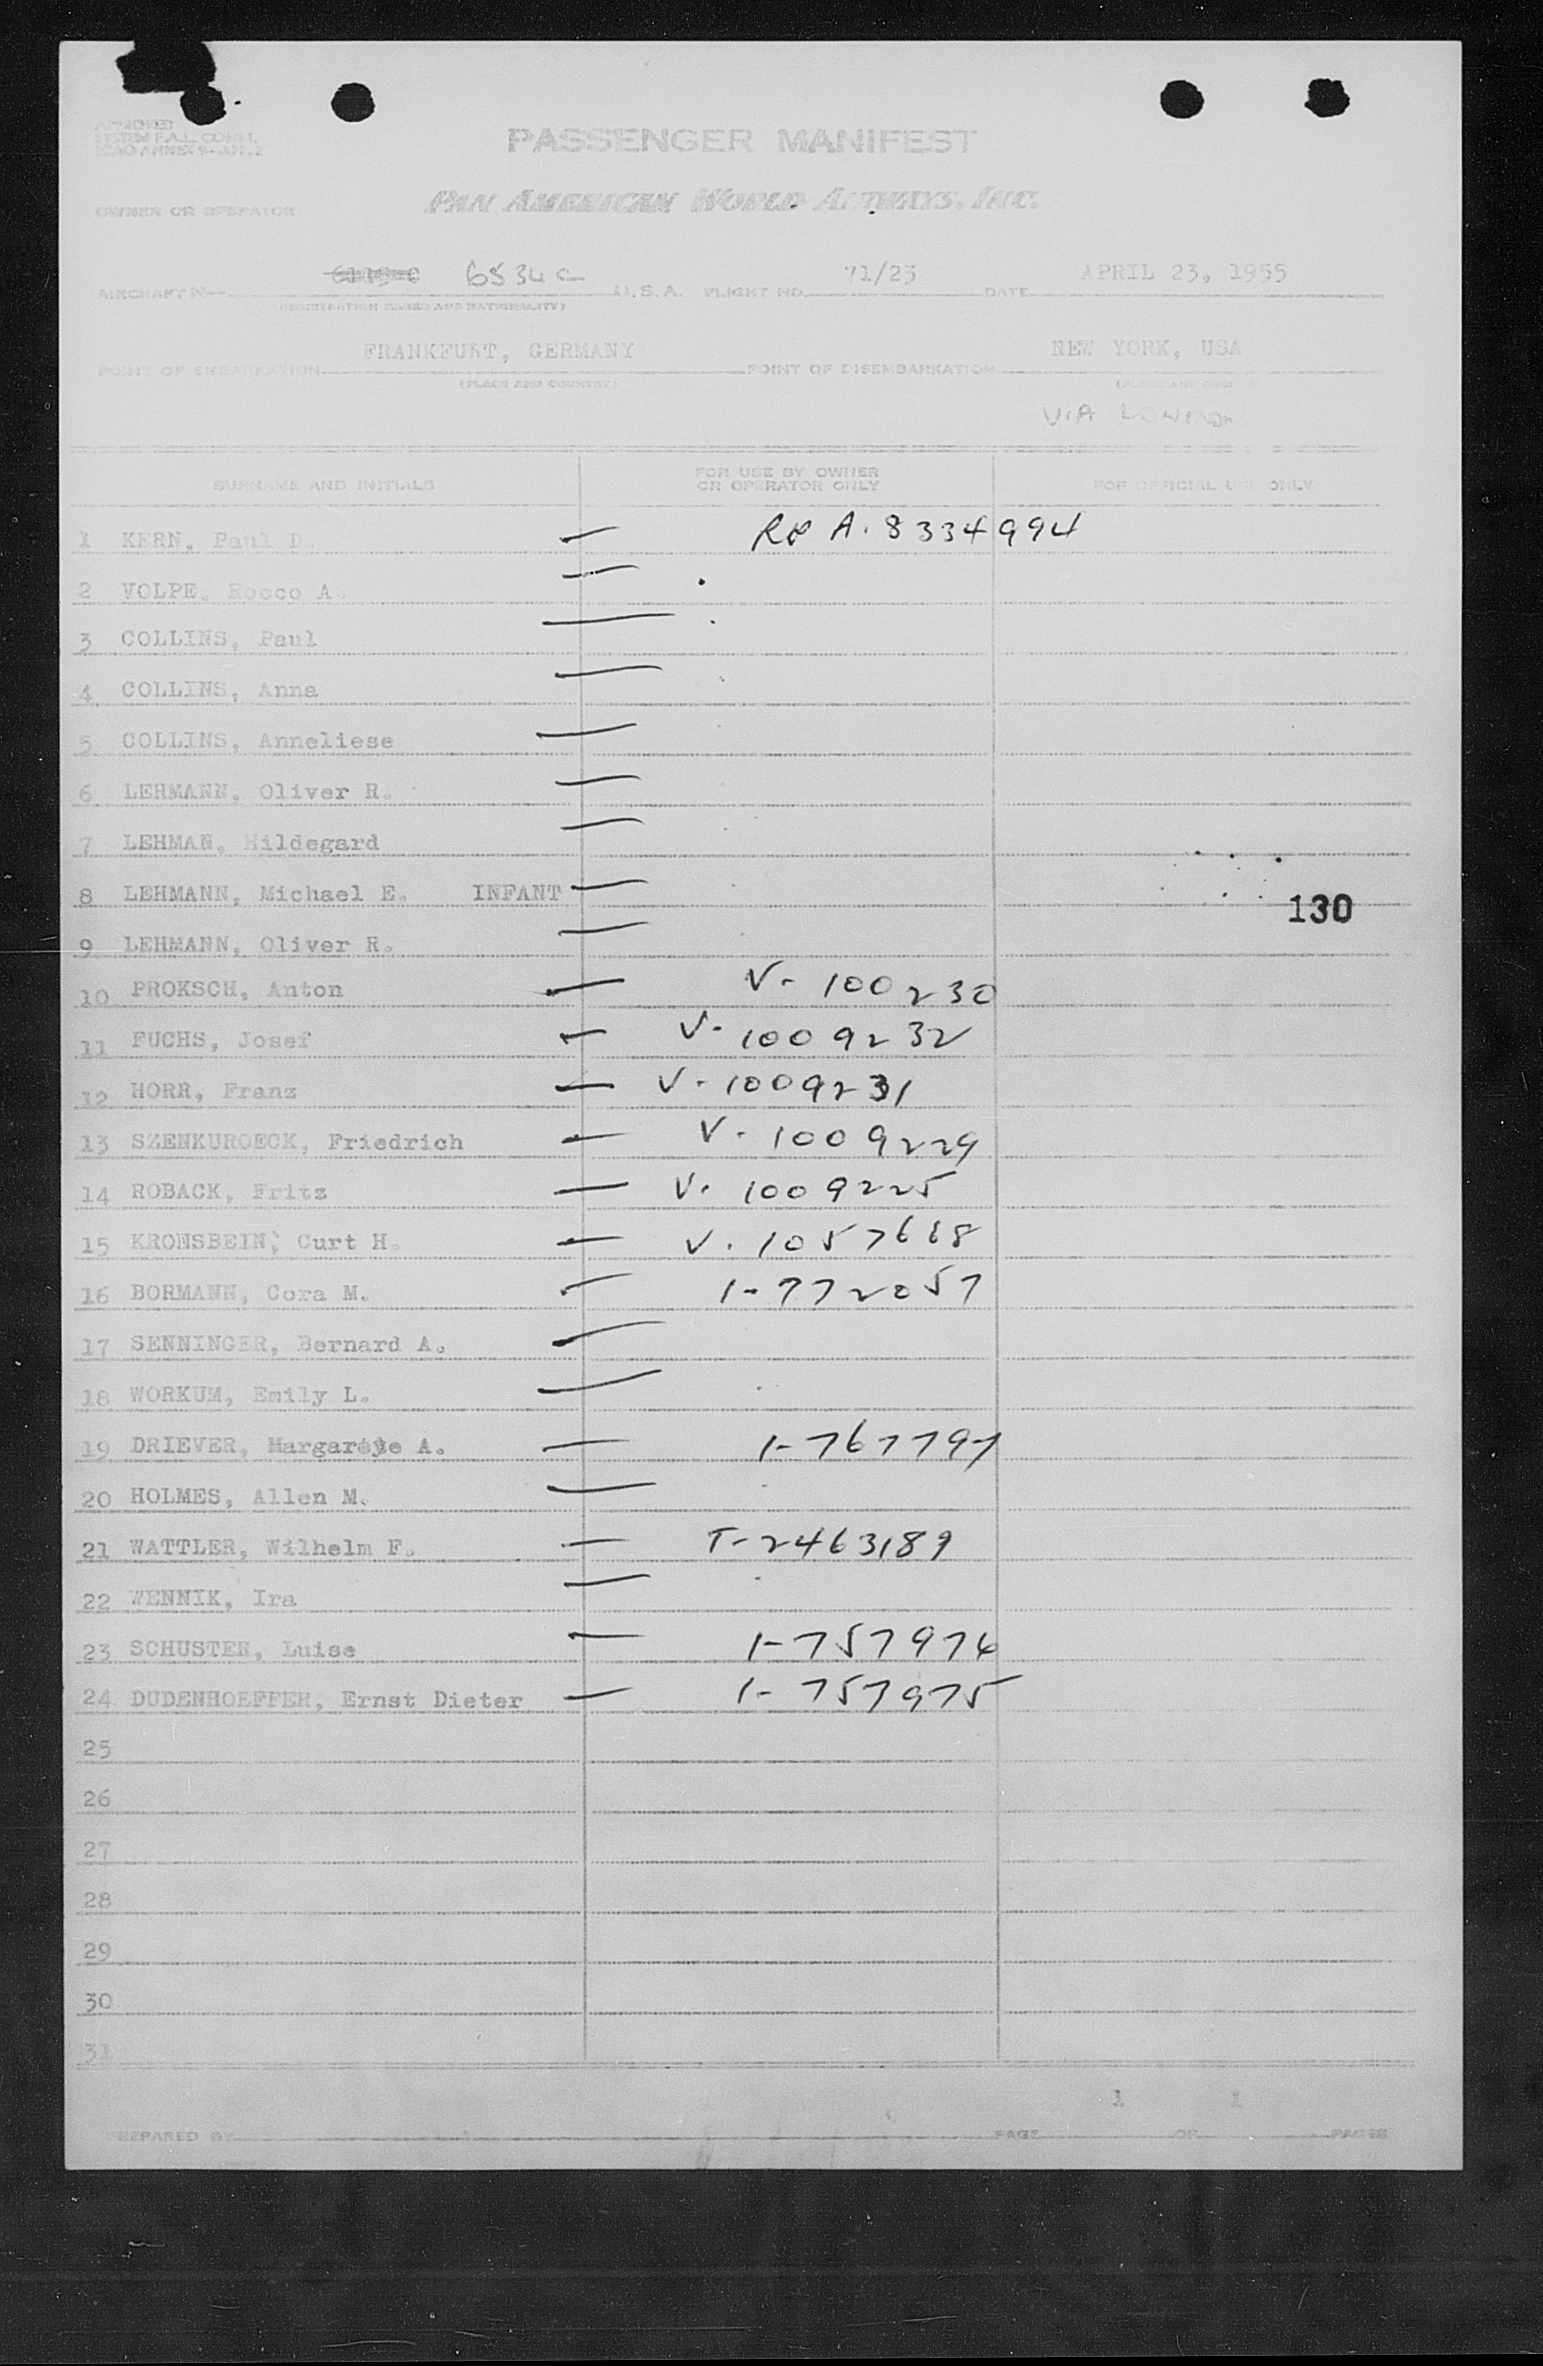 APPROVED
SYSTEM F.A.L. COMM.
ICAO ANNEX 9-APP. 2
PASSENGER MANIFEST
OWNER OR OPERATOR PAN AMERICAN WORLD AIRWAYS, INC.
AIRCRAFT N-- 6534C U.S.A. FLIGHT NO. 71/23 DATE APRIL 23, 1955
(REGISTRATION MARKS AND NATIONALITY)
POINT OF EMBARKATION FRANKFURT, GERMANY POINT OF DISEMBARKATION NEW YORK, USA
(PLACE AND COUNTRY) (PLACE AND COUNTRY)
VIA LONDON
SURNAME AND INITIALS FOR USE BY OWNER OR OPERATOR ONLY FOR OFFICIAL USE ONLY
1 KERN, Paul D. — A. 8334994
2 VOLPE, Rocco A. —
3 COLLINS, Paul —
4 COLLINS, Anna —
5 COLLINS, Anneliese —
6 LEHMANN, Oliver R. —
7 LEHMAN, Hildegard —
8 LEHMANN, Michael E. INFANT — 130
9 LEHMANN, Oliver R. —
10 PROKSCH, Anton — V- 100230
11 FUCHS, Josef — V- 1009232
12 HORR, Franz — V- 1009231
13 SZENKUROECK, Friedrich — V- 1009229
14 ROBACK, Fritz — V. 1009225
15 KRONSBEIN, Curt H. — V. 1057668
16 BORMANN, Cora M. — 1-772057
17 SENNINGER, Bernard A. —
18 WORKUM, Emily L. —
19 DRIEVER, A. —
20 HOLMES, Allen M. —
21 WATTLER, Wilhelm F. — T-2463189
22 WENNIK, Ira —
23 SCHUSTER, Luise — 1-757976
24 DUDENHOEFFER, Ernst Dieter — 1-757975
25
26
27
28
29
30
31
PREPARED BY PAGE 1 OF 1 PAGES